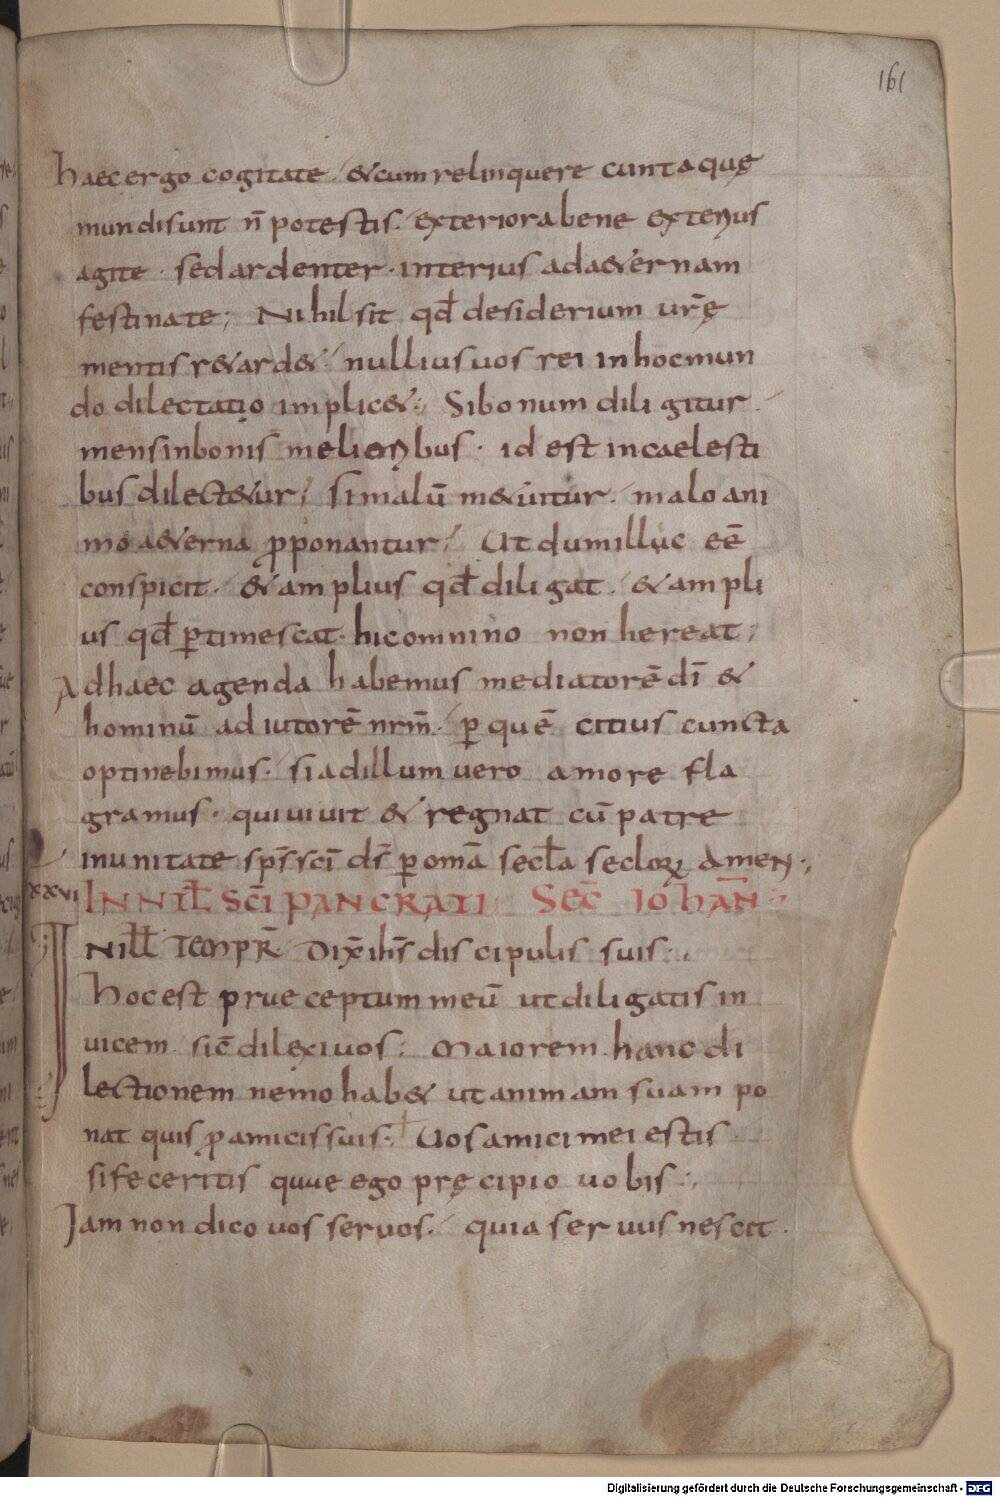 161
haec ergo cogitate · & cum relinquere cunta quę
mundi sunt n̄ potestis · exteriora bene extenus
agite · sed ardenter · interius ad aet&ernam
festinate ; Nihil sit qđ desiderium urę̄
mentis r&ard& · nullius uos rei in hoc mun
do dilectatio implic& ; Si bonum diligitur
mens in bonis melioribus · id est in caelesti
bus dilect&ur ; si malū m&uitur · malo ani
mo a&erna ꝓponantur ; Ut dum illuc eē
conspicit · & amplius qđ diligat · & ampli
us qđ ꝑtimescat · hic omnino non hereat ;
Ad haec agenda habemus mediatorē dī &
hominū adiutorē nrm̄ · ꝑ quē citius cuncta
optinebimus · si ad illum uero amore fla
gramus · qui uiuit & regnat cū patre
in unitate sp̄s sc̄i ds̄ ꝑ omā secła secloꝝ amen ;
XXVI IN NAŁ SC̄I PANCRATI SEC̄ IOHAN̄
IN iłł TEMPR̄ Dix̄ ih̄s discipulis suis
hoc est prae ceptum meū ut diligatis in
uicem sic̄ dilexi uos ; Maiorem hanc di
lectionem nemo hab& ut animam suam po
nat quis ꝓ amicis suis · Uos amici mei estis
si feceritis quae ego pręcipio uobis ;
Iam non dico uos seruos · quia seruus nescit ·
Digitalisierung gefördert durch die Deutsche Forschungsgemeinschaft - DFG